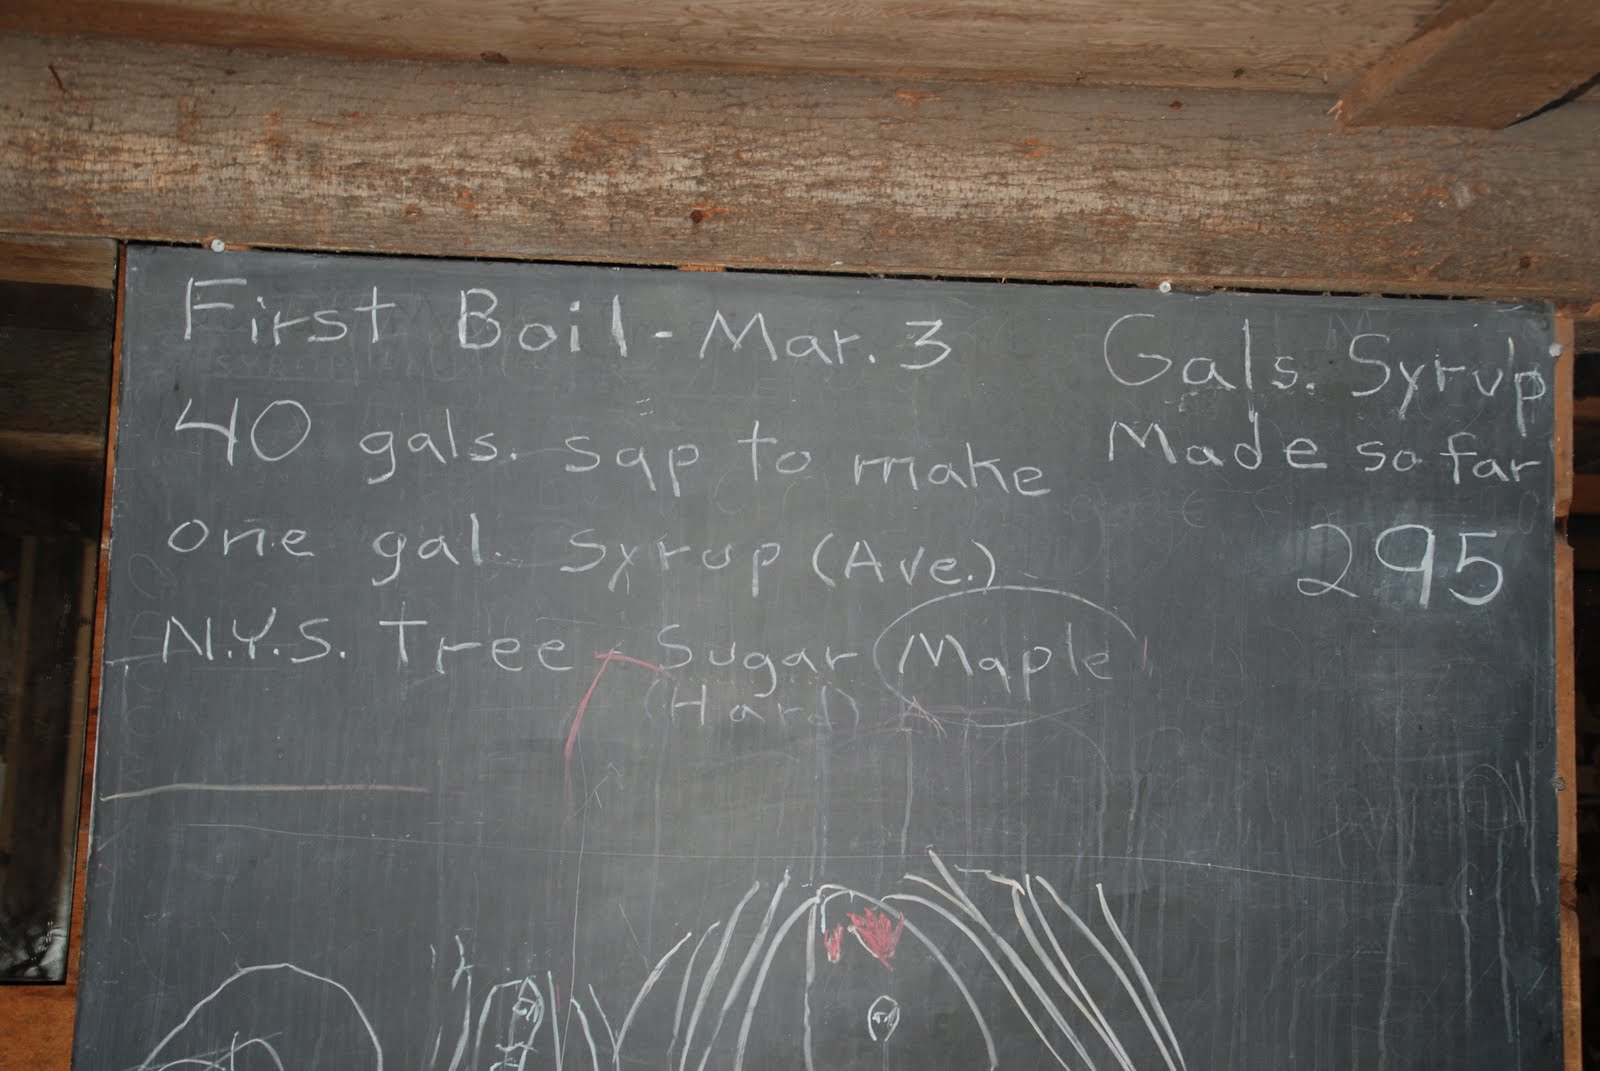 First Boil - Mar. 3
40 gals. sap to make
one gal. syrup (Ave.)
N.Y.S. Tree - Sugar Maple
(Hard)
Gals. Syrup
Made so far
295